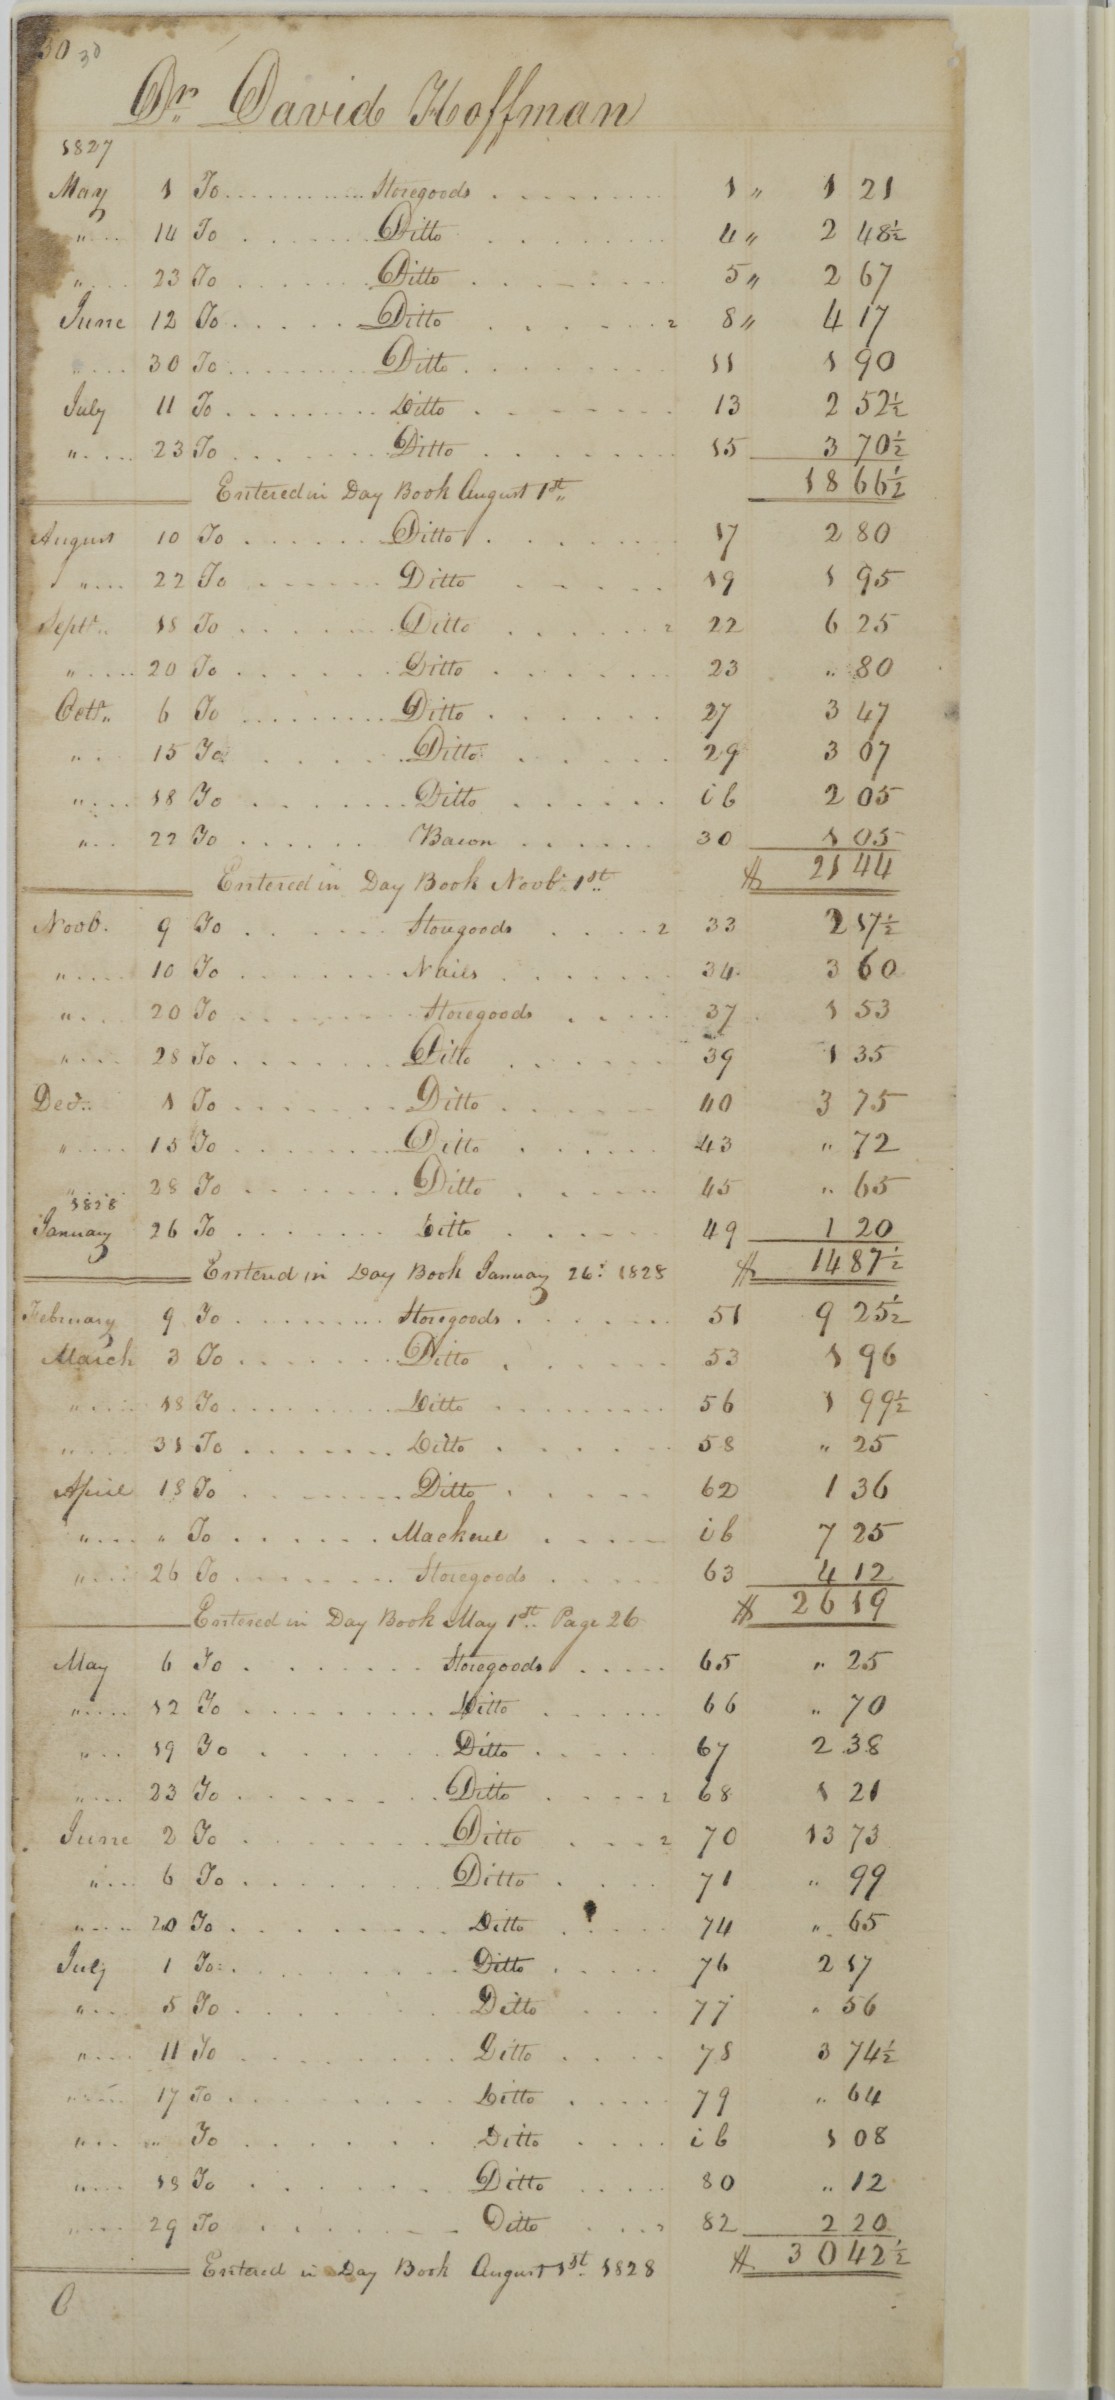 30 30
Dr. David Hoffman
1827
May 1 To Storegoods 1 " 1 21
" 14 To Ditto 4 " 2 48½
" 23 To Ditto 5 " 2 67
June 12 To Ditto 2 8 " 4 17
" 30 To Ditto 11 1 90
July 11 To Ditto 13 2 52½
" 23 To Ditto 15 3 70½
Entered in Day Book August 1st 18 66½
August 10 To Ditto 17 2 80
" 22 To Ditto 19 1 95
Septr 18 To Ditto 2 22 6 25
" 20 To Ditto 23 " 80
Octr 6 To Ditto 27 3 47
" 15 To Ditto 29 3 07
" 18 To Ditto ib 2 05
" 22 To Bacon 30 1 05
Entered in Day Book Novbr 1st $ 21 44
Novb. 9 To Storegoods 2 33 2 17½
" 10 To Nails 34 3 60
" 20 To Storegoods 37 1 53
" 28 To Ditto 39 1 35
Decr 1 To Ditto 40 3 75
" 15 To Ditto 43 " 72
" 28 To Ditto 45 " 65
1828
January 26 To Ditto 49 1 20
Entered in Day Book January 26: 1828 $ 14 87½
February 9 To Storegoods 51 9 25½
March 3 To Ditto 53 1 96
" 18 To Ditto 56 1 99½
" 31 To Ditto 58 " 25
April 18 To Ditto 62 1 36
" " To Mackerel ib 7 25
" 26 To Storegoods 63 4 12
Entered in Day Book May 1st Page 26 $ 26 19
May 6 To Storegoods 65 " 25
" 12 To Ditto 66 " 70
" 19 To Ditto 67 2 38
" 23 To Ditto 2 68 1 21
June 2 To Ditto 2 70 13 73
" 6 To Ditto 71 " 99
" 20 To Ditto 74 " 65
July 1 To Ditto 76 2 17
" 5 To Ditto 77 " 56
" 11 To Ditto 78 3 74½
" 17 To Ditto 79 " 64
" " To Ditto ib 1 08
" 18 To Ditto 80 " 12
" 29 To Ditto 2 82 2 20
Entered in Day Book August 1st 1828 $ 30 42½